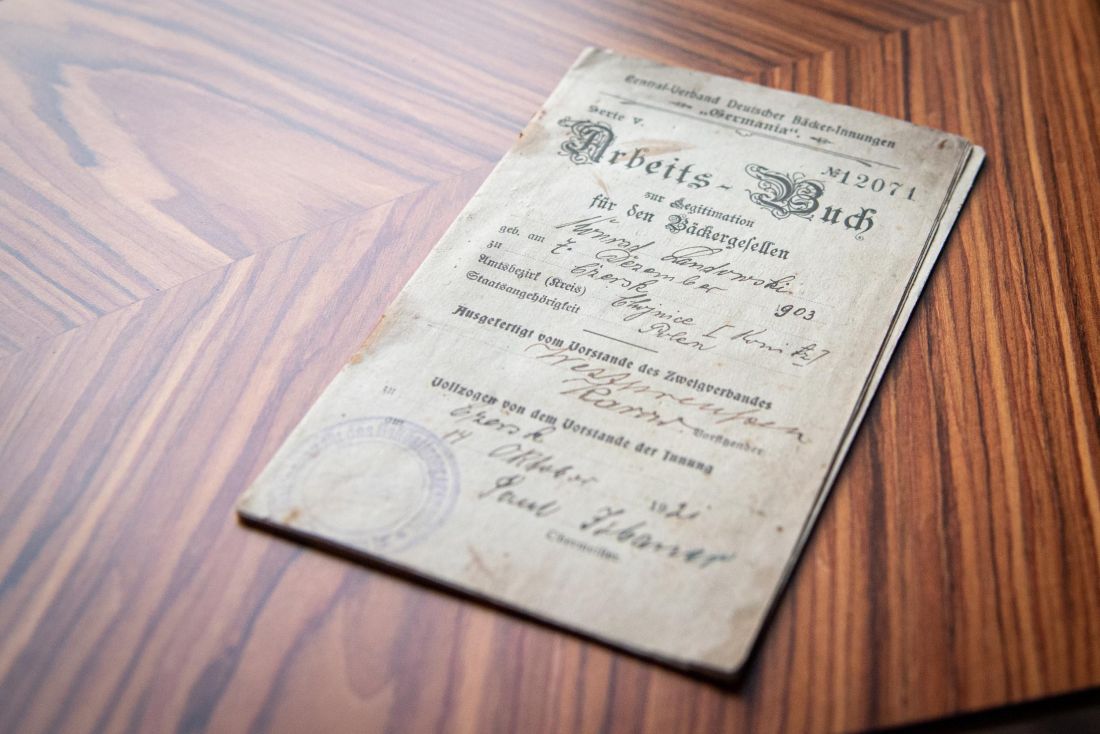 Central-Verband Deutscher Bäcker-Innungen
„Germania“.
Serie V.
№ 12071
Arbeits-Buch
zur Legitimation
für den Bäckergesellen
Konrad Landowski
geb. am 7. Dezember 1903
zu Czersk
Amtsbezirk (Kreis) Chojnice [Konitz]
Staatsangehörigkeit Polen
Ausgefertigt vom Vorstande des Zweigverbandes
Westpreußen
Vorsitzender
Vollzogen von dem Vorstande der Innung
zu Czersk
am 14 Oktober 1921
Paul
Obermeister.